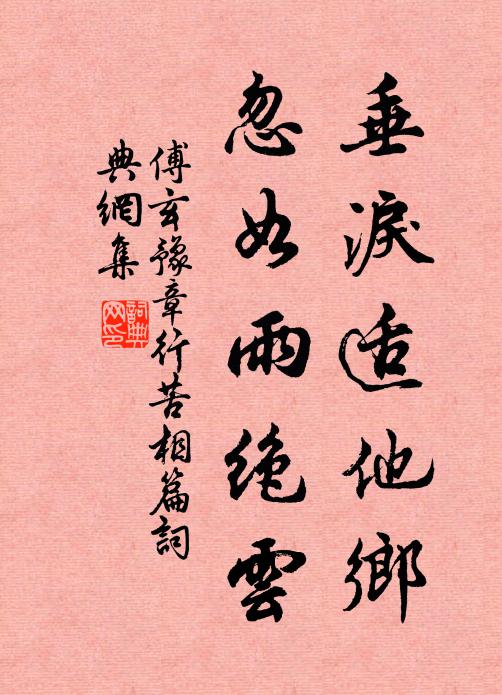 垂淚适他鄉
忽如雨絶雲
傅玄豫章行苦相篇詞
典網集
詞典
网印